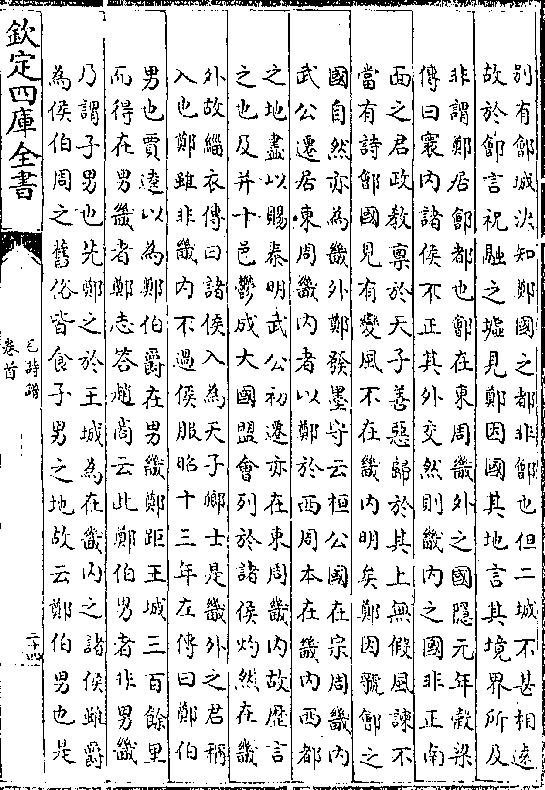 別有鄶城決知鄭國之都非鄶也但二城不甚相遠
故於鄶言祝融之墟見鄭因國其地言其境界所及
非謂鄭居鄶都也鄶在東周畿外之國隱元年穀梁
傳曰寰内諸侯不正其外交然則畿内之國非正南
西之君政教禀於天子善惡歸於其上無假風諫不
當有詩鄶國見有變風不在畿内明矣鄭因虢鄶之
國自然亦為畿外鄭發墨守云桓公國在宗周畿内
武公遷居東周畿内者以鄭於西周本在畿内西都
之地盡以賜秦明武公初遷亦在東周畿内故歴言
之也及并十邑鬱成大國盟會列於諸侯灼然在畿
外故緇衣傳曰諸侯入為天子卿士是畿外之君稱
入也鄭雖非畿内不過侯服昭十三年左傳曰鄭伯
男也賈逵以為鄭伯爵在男畿鄭距王城三百餘里
而得在男畿者鄭志答趙商云此鄭伯男者非男畿
乃謂子男也先鄭之於王城為在畿内之諸侯雖爵
為侯伯周之舊俗皆食子男之地故云鄭伯男也是
欽定四庫全書
毛詩譜
卷首
二十四